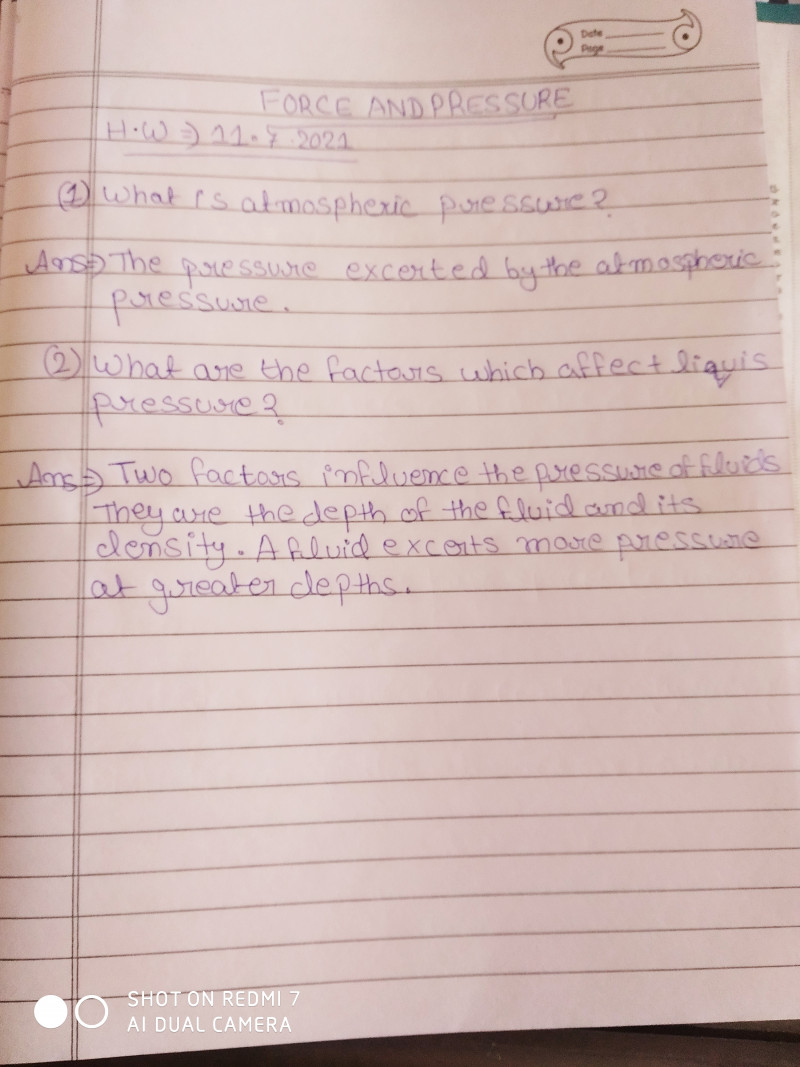 Date
Page
FORCE AND PRESSURE
H.W ⇒ 11.7.2021
(1) What is atmospheric pressure?
Ans⇒ The pressure excerted by the atmospheric
pressure.
(2) What are the factors which affect liquis
pressure?
Ans⇒ Two factors influence the pressure of fluids
They are the depth of the fluid and its
density. A fluid excerts more pressure
at greater depths.
SHOT ON REDMI 7
AI DUAL CAMERA